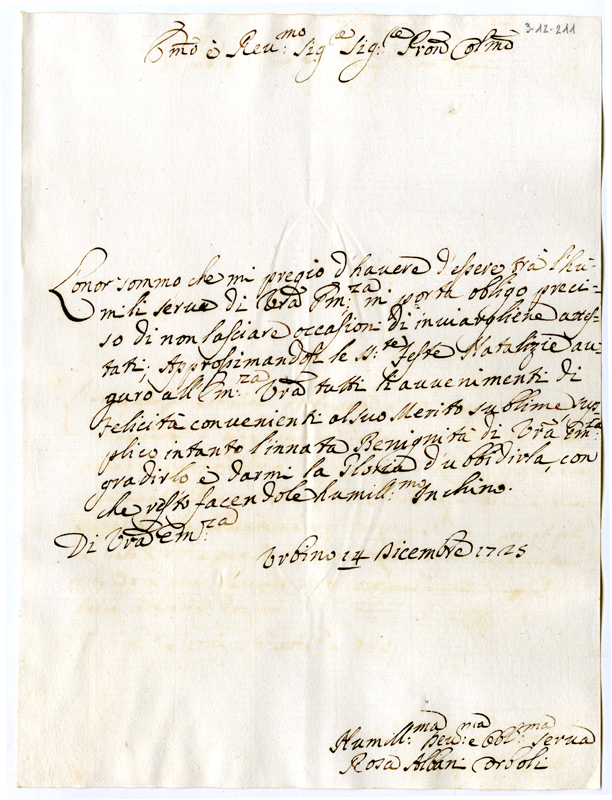 3-12-211
Em̃o è Reu:mo Sig:re Sig:re Pron Col̃mo
L'onor sommo che mi pregio d'havere d'essere trà l'hu-
mili serve di Vr̃a Em:za mi porta obligo preci-
so di non lasciare occasioni di inviargliene attes-
tati; Approssimandosi le S:te Feste Natalizie au-
guro all'Em:za Vr̃a tutti li avvenimenti di
felicità convenienti al suo Merito sublime sup-
plico intanto l'innata Benignità di Vr̃a Em:za
gradirlo è darmi la Gloria d'ubbidirla, con
che resto facendole humill:mo Inchino.
Di Vr̃a Em:za
Urbino 14 Dicembre 1725
Humill:ma Deu:ma e Obl:ma Serva
Rosa Albani Ordoli